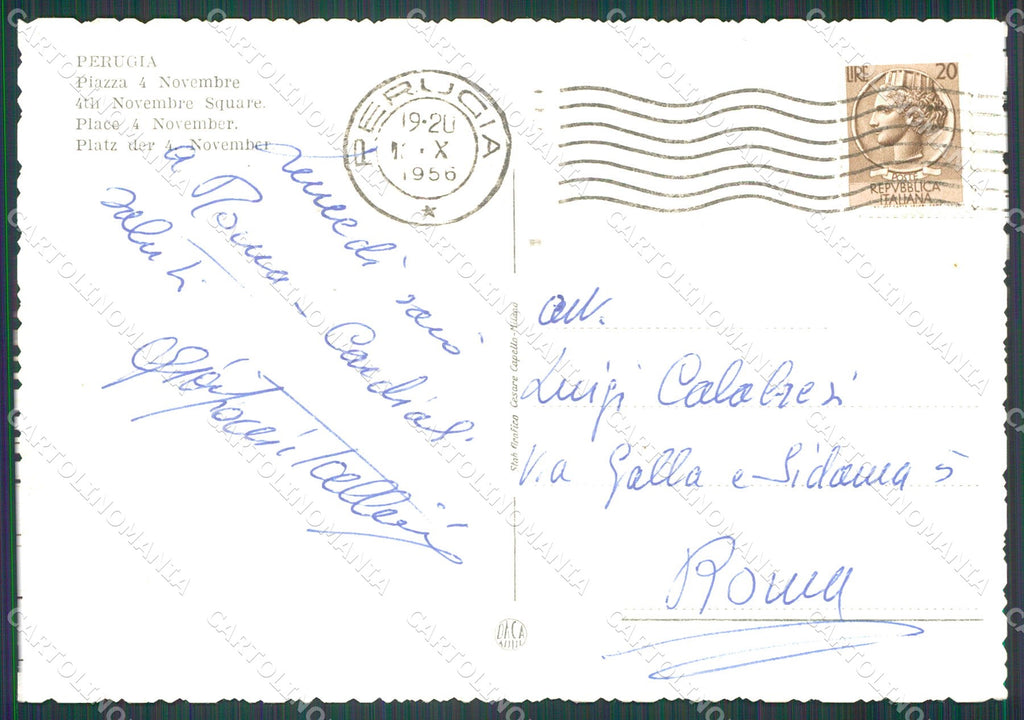 PERUGIA
Piazza 4 Novembre
4th Novembre Square.
Place 4 November.
Platz der 4. November
PERUGIA
19-20
X
1956
LIRE 20
POSTE
REPVBBLICA
ITALIANA
Lunedì sarò
a Roma - Cordiali
saluti
Stab. Grafico Cesare Capello - Milano
avv.
Luigi Calabresi
Via Galla e Sidama 5
Roma
DACA
CARTOLINOMANIA